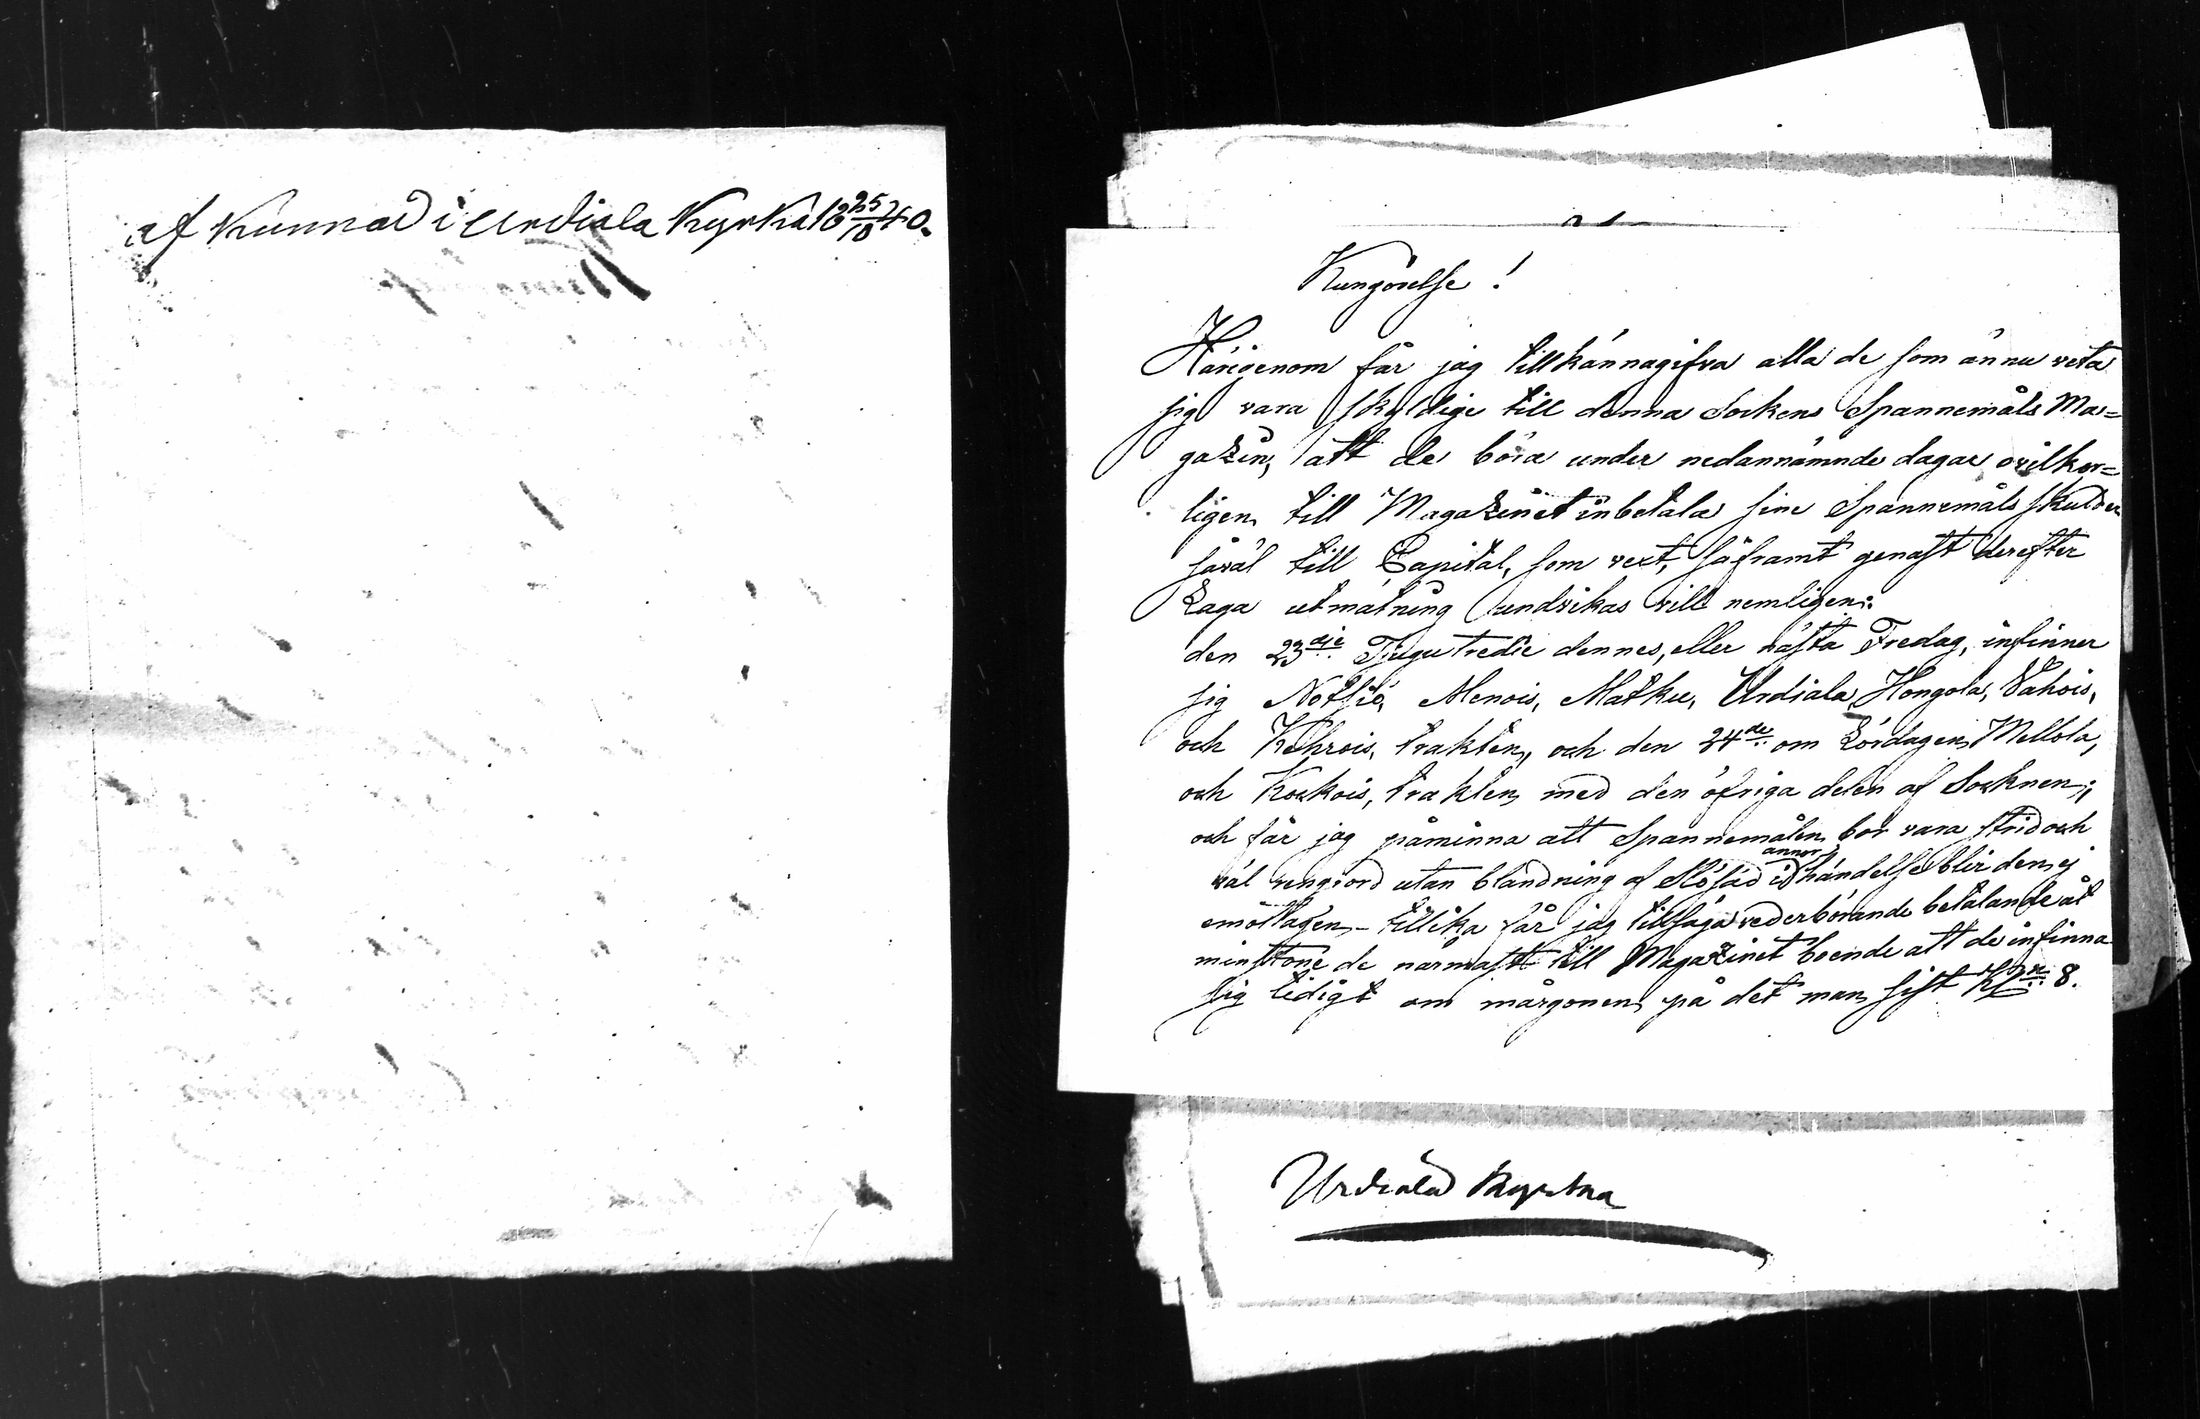 af kunnad i Urdiala Kyrka 18 25/10 40.
Kungörelse!
Härigenom får jag tillkännagifva alla de som ännu veta
sig vara skyldige till denna Sockens Spannemåls Ma=
gazin, att de böra under nedannämnde dagar ovilkor=
ligen till Magazinet inbetala sine Spannemåls skulder
såväl till Capital, som vext, såframt genast derefter
Laga utmätning undvikas vill nemligen:
den 23dje Tjugutredie dennes, eller nästa Fredag, infinner
sig Notsjö, Menois, Matku, Urdiala, Hongola, Vahois,
och Kehrois, trakten, och den 24de om Lördagen Mellola,
och Koskois, trakten med den öfriga delen af Socknen;
och får jag påminna att Spannemålen bör vara strid och
väl rengjord utan blandning af Slösäd i annor händelse blir den ej
emottagen - tillika får jag tillsäga vederbörande betalande åt
minstone de närmast till Magazinet boende att de infinna
sig tidigt om morgonen på det man sist 8.
Urdiala Kyrka